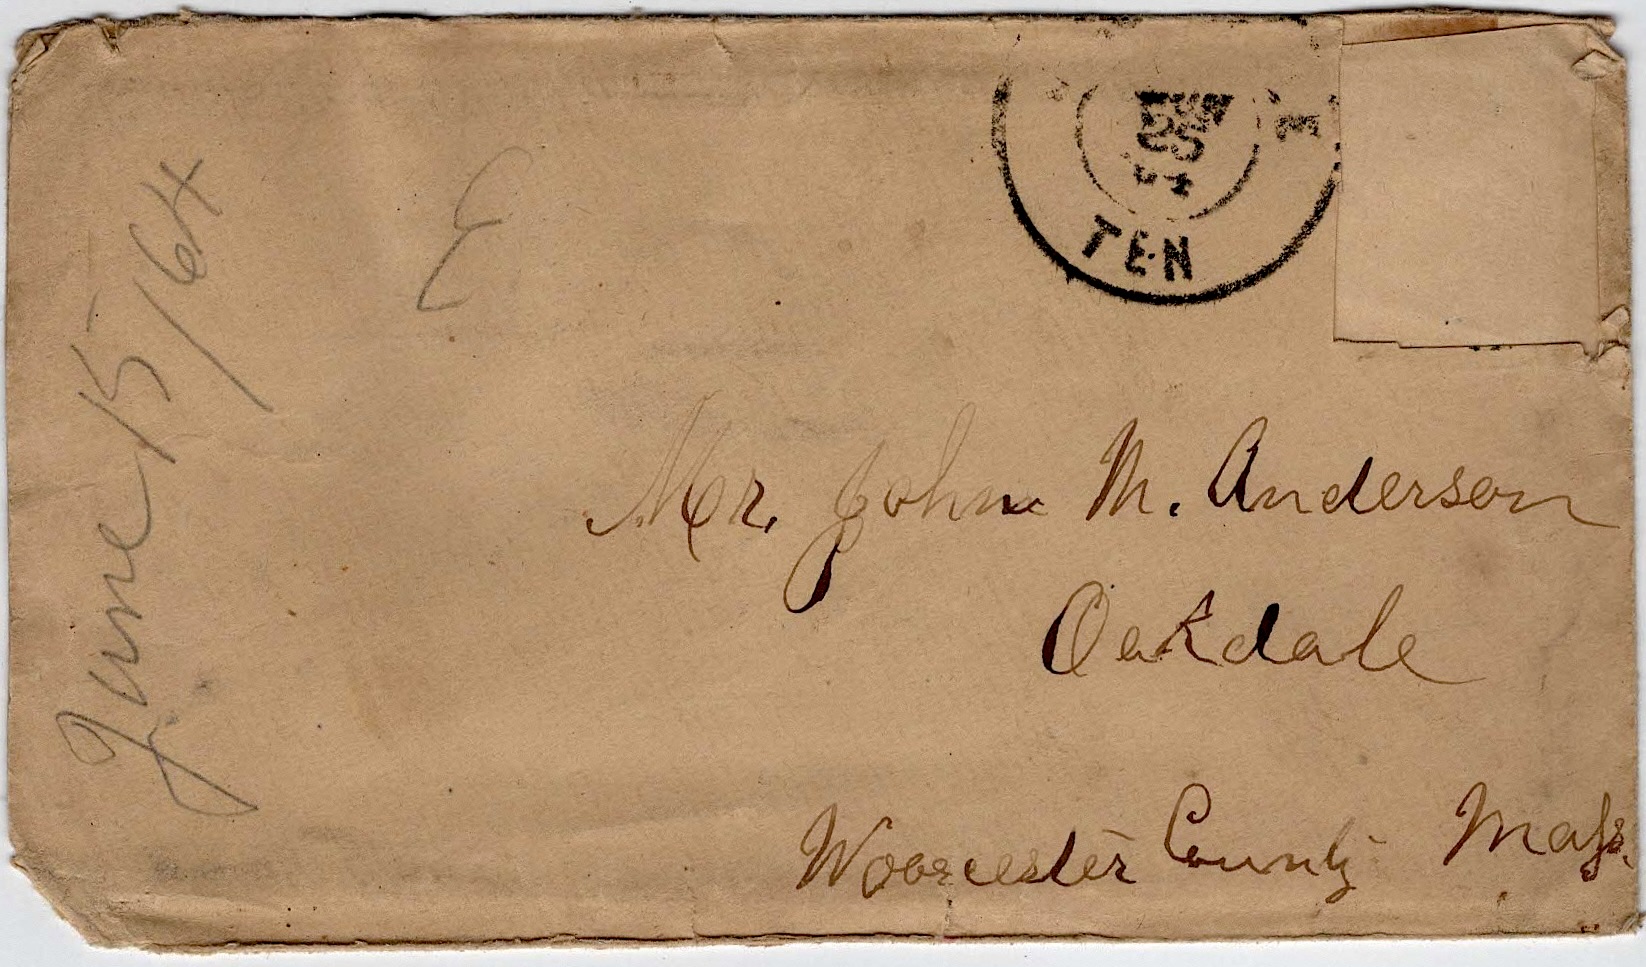 TEN
E
June 15/64
Mr. John M. Anderson
Oakdale
Worcester County Mass.